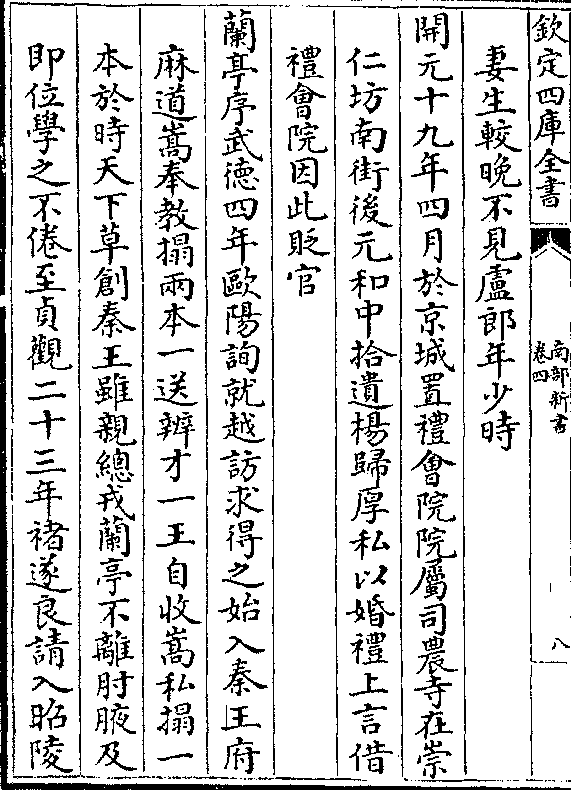 欽定四庫全書
南部新書
卷四
八
妻生較晚不見盧郎年少時
開元十九年四月於京城置禮會院院屬司農寺在崇
仁坊南街後元和中拾遺楊歸厚私以婚禮上言借
禮會院因此貶官
蘭亭序武德四年歐陽詢就越訪求得之始入秦王府
麻道嵩奉教搨兩本一送辨才一王自收嵩私搨一
本於時天下草創秦王雖親總戎蘭亭不離肘腋及
即位學之不倦至貞觀二十三年褚遂良請入昭陵